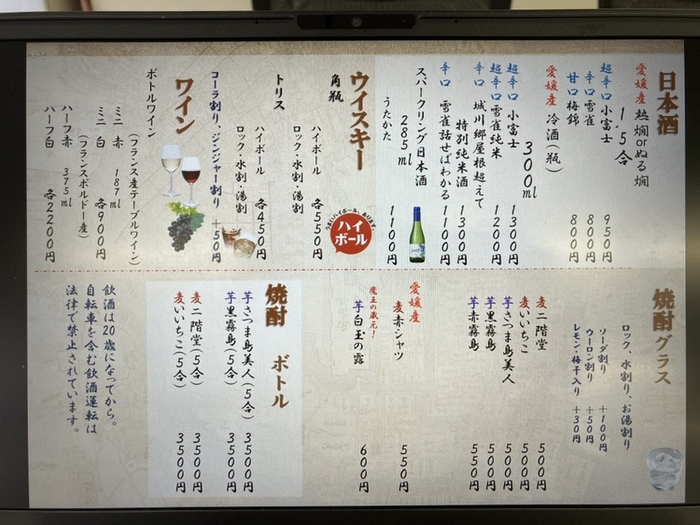 日本酒
愛媛産 熱燗orぬる燗
1.5合
超辛口 小富士 950円
辛口 雪雀 800円
甘口 梅錦 800円
愛媛産 冷酒(瓶)
300ml
超辛口 小富士 1300円
超辛口 雪雀純米 1200円
辛口 城川郷屋根超えて
特別純米酒 1300円
辛口 雪雀話せばわかる 1100円
スパークリング日本酒
285ml
うたかた 1100円
ウイスキー
角瓶
ハイボール 各550円
ロック・水割・湯割
うまいハイボール、あります。
ハイボール
トリス
ハイボール 各450円
ロック・水割・湯割
コーラ割り、ジンジャー割り +50円
ワイン
ボトルワイン
(フランス産テーブルワイン)
ミニ 赤 187ml
ミニ 白 各900円
(フランスボルドー産)
ハーフ赤 375ml
ハーフ白 各2200円
焼酎グラス
ロック、水割り、お湯割り
ソーダ割り +100円
ウーロン割り +50円
レモン・梅干入り +30円
麦二階堂 500円
麦いいちこ 500円
芋さつま島美人 500円
芋黒霧島 500円
芋赤霧島 550円
愛媛産
麦赤シャツ 550円
魔王の蔵元!
芋白玉の露 600円
焼酎 ボトル
芋さつま島美人(5合) 3500円
芋黒霧島(5合) 3500円
麦二階堂(5合) 3500円
麦いいちこ(5合) 3500円
飲酒は20歳になってから。
自転車を含む飲酒運転は
法律で禁止されています。